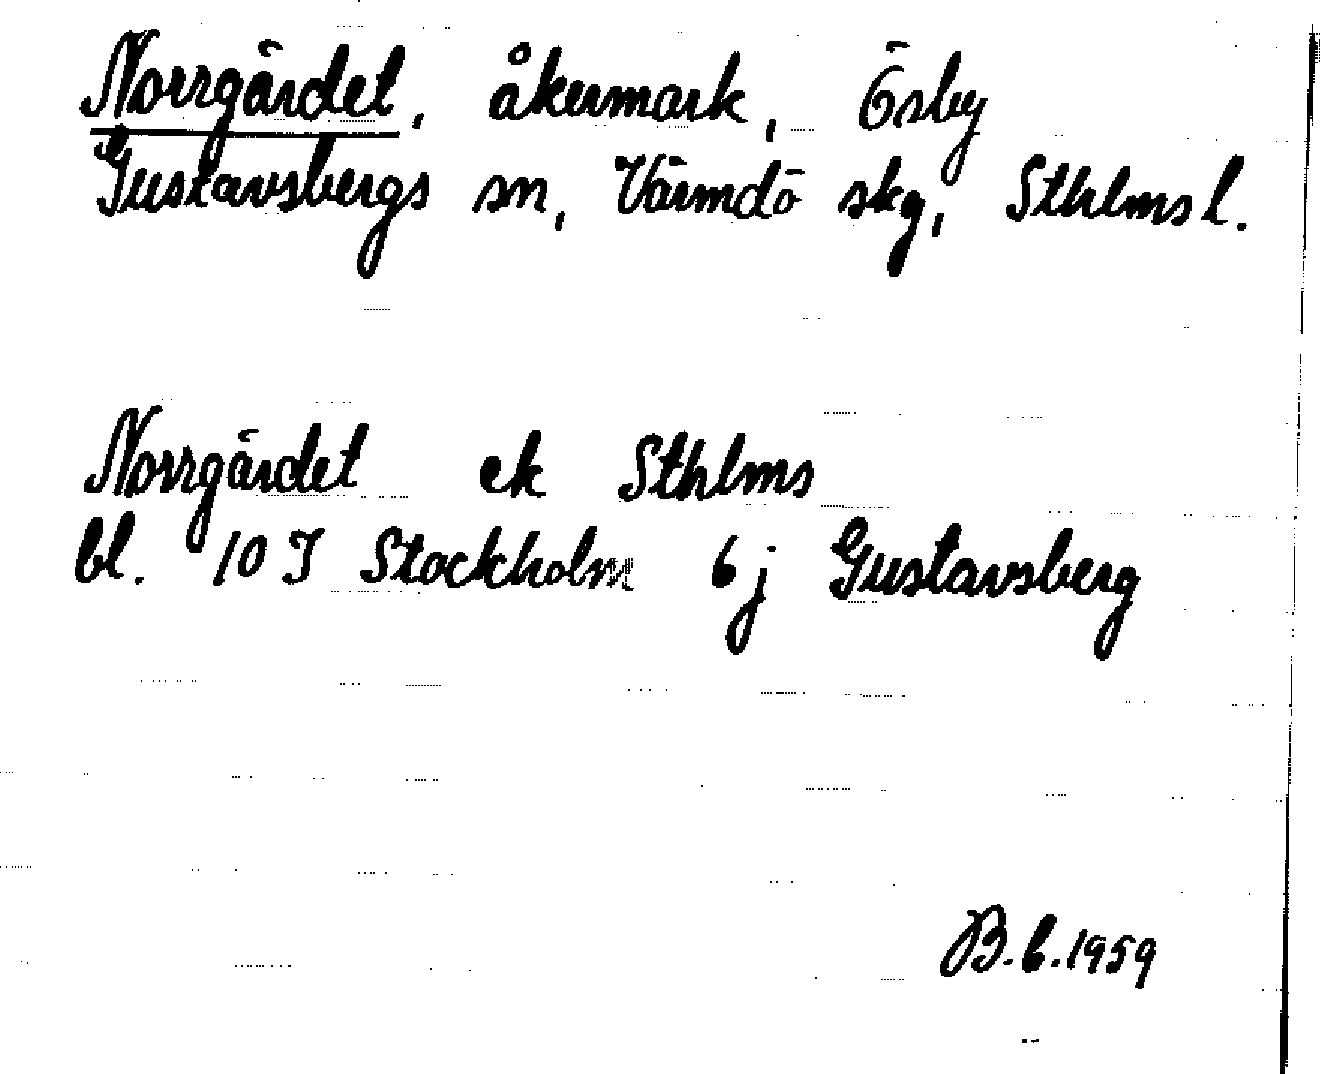 Norrgärdet, åkermark, Ösby
Gustavsbergs sn, Värmdö skg, Sthlms l.
Norrgärdet ek Sthlms
bl. 10 I Stockholm 6j Gustavsberg
B.G.1959